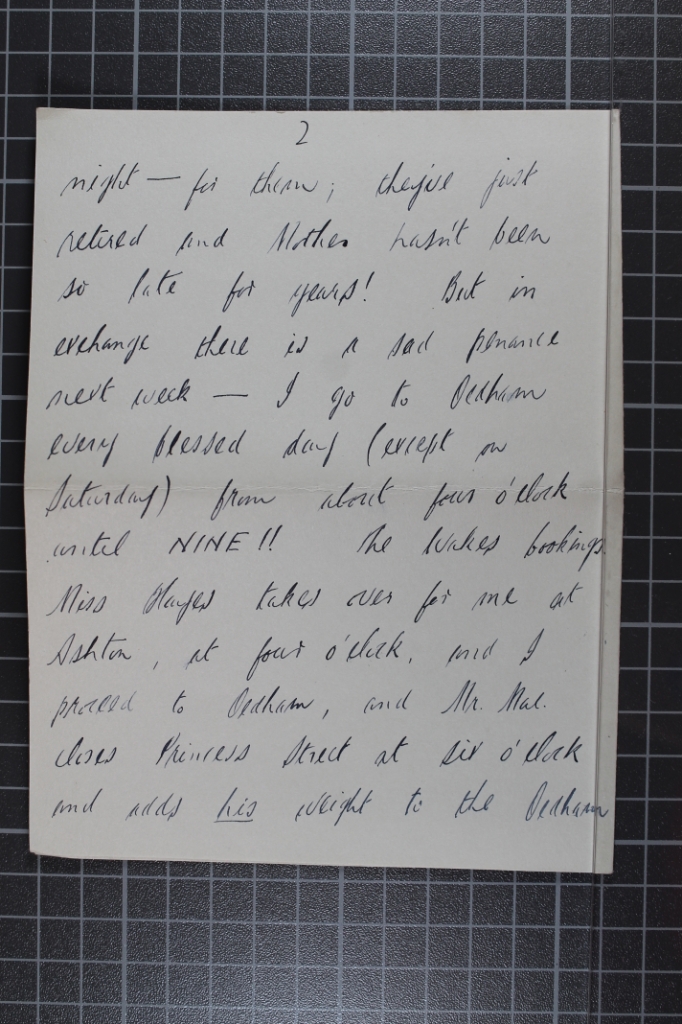 2
night — for them; they've just
retired and Mother hasn't been
so late for years! But in
exchange there is a sad penance
next week — I go to Oldham
every blessed day (except on
Saturday) from about four o'clock
until NINE!! The Wakes bookings.
Miss Hayes takes over for me at
Ashton, at four o'clock, and I
proceed to Oldham, and Mr. Mac.
closes Princess Street at six o'clock
and adds his weight to the Oldham